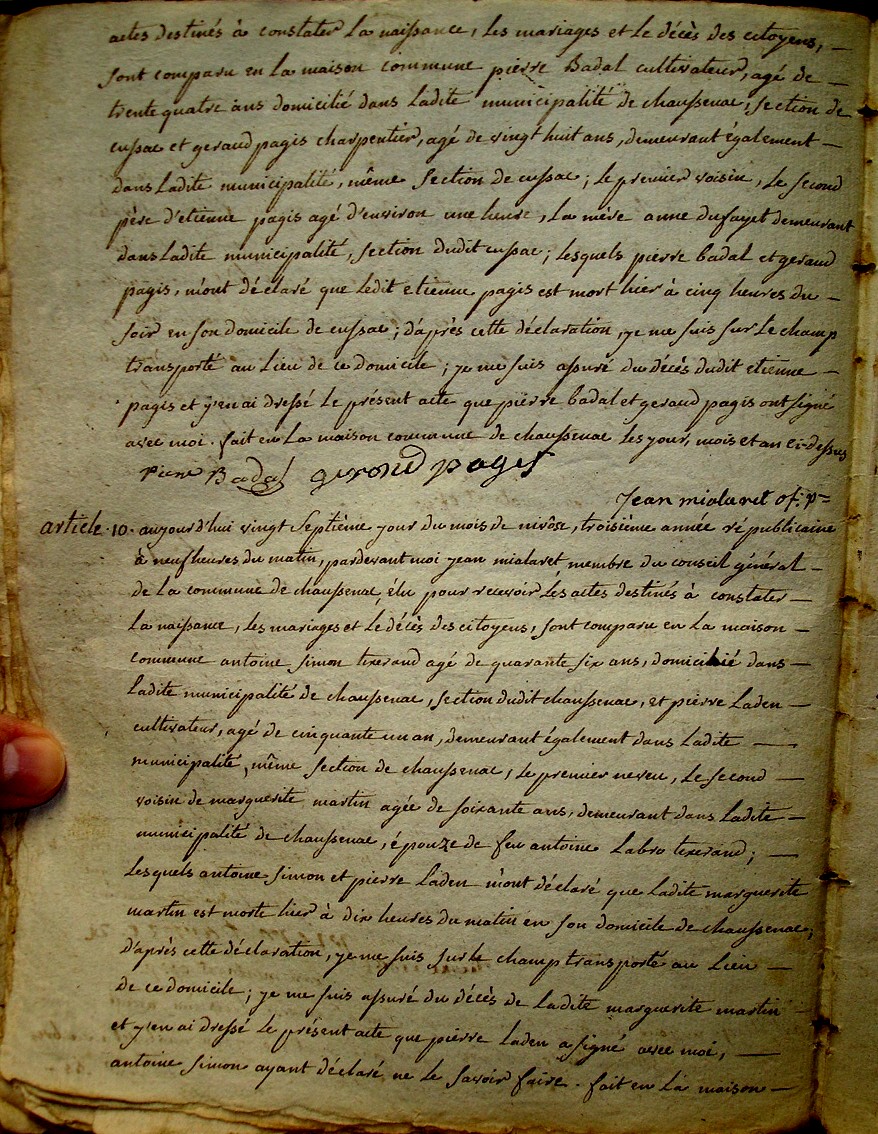 actes destinés à constater la naissance, les mariages et le décès des citoyens, —
sont comparu en la maison commune pierre Badal cultivateur, agé de —
trente quatre ans domicilié dans ladite municipalité de chaussenac, section de
cussac et geraud pagis charpentier, agé de vingt huit ans, demeurant également —
dans ladite municipalité, même section de cussac; le premier voisin, le second
père d'etienne pagis agé d'environ une heure, la mère anne dufayet demeurant
dans ladite municipalité, section dudit cussac; lesquels pierre badal et geraud
pagis, m'ont déclaré que ledit etienne pagis est mort hier à cinq heures du —
soir en son domicile de cussac; d'après cette déclaration, je me suis sur le champ
transporté au lieu de ce domicile; je me suis assuré du décès dudit etienne —
pagis et j'en ai dressé le présent acte que pierre badal et geraud pagis ont signé
avec moi. fait en la maison commune de chaussenac les jour, mois et an ci-dessus
Pierre Badal geroud pages
Jean mialaret of. p.
article. 10. aujourd'hui vingt septième jour du mois de nivôse, troisième année républicaine
à neuf heures du matin, pardevant moi jean mialaret membre du conseil général —
de la commune de chaussenac, élu pour recevoir les actes destinés à constater —
la naissance, les mariages et le décès des citoyens, sont comparu en la maison —
commune antoine simon texerand agé de quarante six ans, domicilié dans —
ladite municipalité de chaussenac, section dudit chaussenac, et pierre laden —
cultivateur, agé de cinquante un an, demeurant également dans ladite —
municipalité, même section de chaussenac, le premier neveu, le second —
voisin de marguerite martin agée de soixante ans, demeurant dans ladite —
municipalité de chaussenac, épouze de feu antoine labro texerand; —
lesquels antoine simon et pierre laden m'ont déclaré que ladite marguerite
martin est morte hier à dix heures du matin en son domicile de chaussenac;
d'après cette déclaration, je me suis sur le champ transporté au lieu —
de ce domicile; je me suis assuré du décès de ladite marguerite martin
et j'en ai dressé le présent acte que pierre laden a signé avec moi, —
antoine simon ayant déclaré ne le savoir faire. fait en la maison —